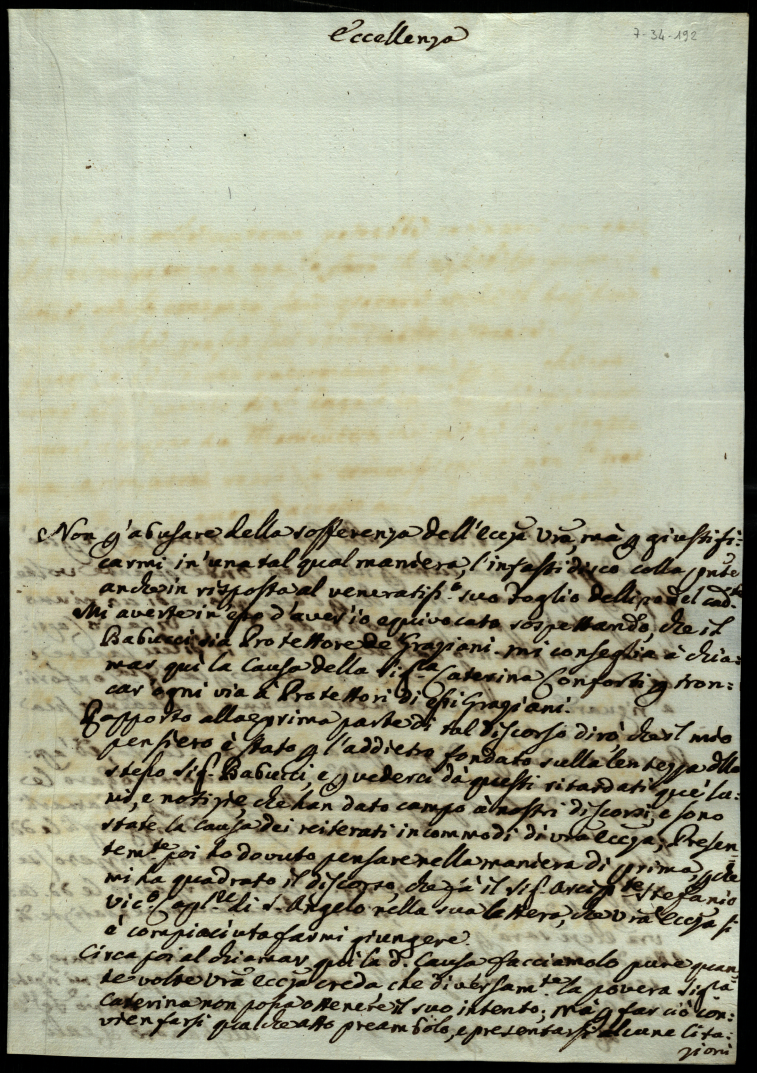 Eccellenza
7-34-192
Non p abusare della sofferenza dell'Ecc:za Vra, mà p giustifi:
carmi in'una tal qual maniera, l'infastidisco colla pnte
anche in risposta al veneratiss:o suo Foglio delli del cad:te
Mi averte in esso d'aver'io equivocato sospettando, che il
Babucci sia Protettore de' Graziani mi conseglia à chia:
mar qui la Causa della Sig:ra Caterina Conforti p tron:
car ogni via à Protettori di essi Graziani.
Rapporto alla prima parte di tal discorso dirò che il mio
pensiero è stato p l'addietro fondato sulla lentezza dello
stesso Sig:r Babucci, e p vederci dà questi ritardati que' lu:
mi, e notizie, che han dato campo à nostri discorsi, e sono
state la causa dei reiterati incommodi di Vra Ecc:za; Presen:
tem:te poi hò dovuto pensare nella maniera di prima, p che
mi ha quadrato il discorso, che fà il Sig:r Stefanio
Vic:o di S. Angelo nella sua lettera, che Vra Ecc:za si
è compiaciuta farmi giungere.
Circa poi al chiamar qui la d:a Causa facciamolo pure quan:
te volte Vra Ecc:za creda che diversam:te la povera Sig:ra
Caterina non possa ottenere il suo intento; mà p far ciò con:
vien farsi qualche atto preambolo, e presentarsi alcune Cita:
zioni